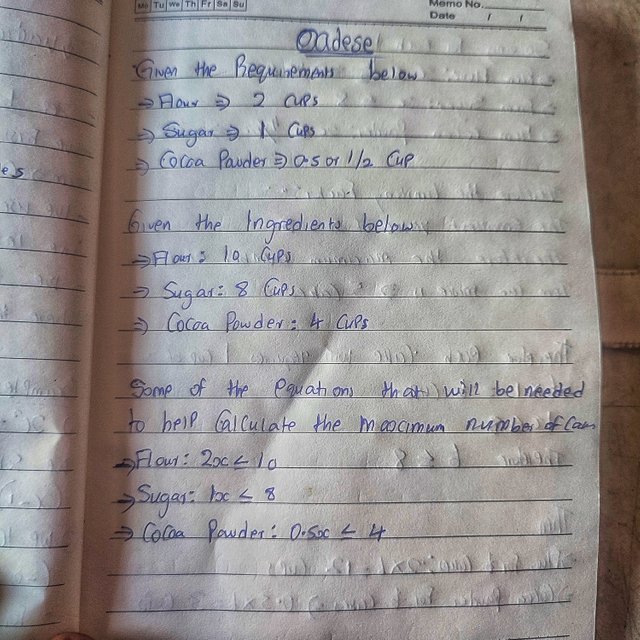 Mo Tu We Th Fr Sa Su
Memo No.
Date / /
Oadese
Given the Requirements below
⇒ Flour ⇒ 2 cups
⇒ Sugar ⇒ 1 Cups
⇒ Cocoa Powder ⇒ 0.5 or 1/2 Cup
Given the Ingredients below
⇒ Flour : 10 Cups
⇒ Sugar : 8 Cups
⇒ Cocoa Powder : 4 Cups
Some of the equations that will be needed
to help Calculate the maximum number of
⇒ Flour : 2x ≤ 10
⇒ Sugar : 1x ≤ 8
⇒ Cocoa Powder : 0.5x ≤ 4